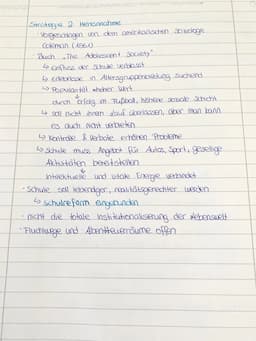 Strategie 2: Hereinnahme
Vorgeschlagen von dem amerikanischen Soziologe
Coleman (1961)
Buch "The Adolescent Society"
↳ Einfluss der Schule verblasst
↳ Erlebnisse in Altersgruppenbildung suchend
↳ Popularität = hoher Wert
durch Erfolg im Fußball, höhere soziale Schicht
↳ soll nicht ihnen überlassen, aber man kann
es auch nicht verbieten
↳ Kontrolle & Verbote erhöhen Probleme
↳ Schule muss Angebot für Autos, Sport, gesellige
Aktivitäten bereitstellen
intellektuelle und vitale Energie verbindet
- Schule soll lebendiger, realitätsgerechter werden
↳ Schulreform eingebunden
- nicht die totale Institutionalisierung der Lebenswelt
- Fluchtwege und Abenteuerräume offen